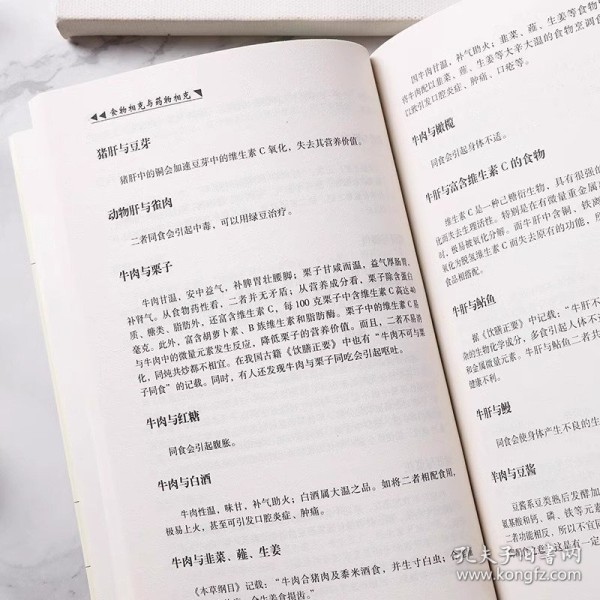 食物相克与药物相克
猪肝与豆芽
猪肝中的铜会加速豆芽中的维生素 C 氧化，失去其营养价值。
动物肝与雀肉
二者同食会引起中毒，可以用绿豆治疗。
牛肉与栗子
牛肉甘温，安中益气，补脾胃壮腰脚；栗子甘咸而温，益气厚肠胃，
补肾气。从食物药性看，二者并无矛盾；从营养成分看，栗子除含蛋白
质、糖类、脂肪外，还富含维生素 C，每 100 克栗子中含维生素 C 高达 40
毫克。此外，富含胡萝卜素、B 族维生素和脂肪酶。栗子中的维生素 C 易
与牛肉中的微量元素发生反应，降低栗子的营养价值。而且，二者不易消
化，同炖共炒都不相宜。在我国古籍《饮膳正要》中也有“牛肉不可与栗
子同食”的记载。同时，有人还发现牛肉与栗子同吃会引起呕吐。
牛肉与红糖
同食会引起腹胀。
牛肉与白酒
牛肉性温，味甘，补气助火；白酒属大温之品。如将二者相配食用，
极易上火，甚至可引发口腔炎症、肿痛。
牛肉与韭菜、薤、生姜
《本草纲目》记载：“牛肉合猪肉及黍米酒食，并生寸白虫；
合生姜食损齿。”
因牛肉甘温，补气助火；韭菜、薤、生姜等食物
若牛肉配以韭菜、薤、生姜等大辛大温的食物烹调食
以致引发口腔炎症、肿痛、口疮等。
牛肉与橄榄
同食会引起身体不适。
牛肝与富含维生素 C 的食物
维生素 C 是一种己糖衍生物，具有很强的
化而失去生理活性。特别是在有微量重金属
时，极易被氧化分解。而牛肝中含铜、铁离
氧化为脱氢维生素 C 而失去原有的功能，所
食品相搭配。
牛肝与鲇鱼
据《饮膳正要》中记载：“牛肝不
杂的生物化学成分，多食引起人体不
和金属微量元素。牛肝与鲇鱼二者共
健康不利。
牛肝与鳗
同食会使身体产生不良的生
羊肉与豆酱
豆酱系豆类熟后发酵加
氨基酸和钙、磷、铁等元素
者功能相反，所以不宜同
孔夫子旧书网
www.kongfz.com